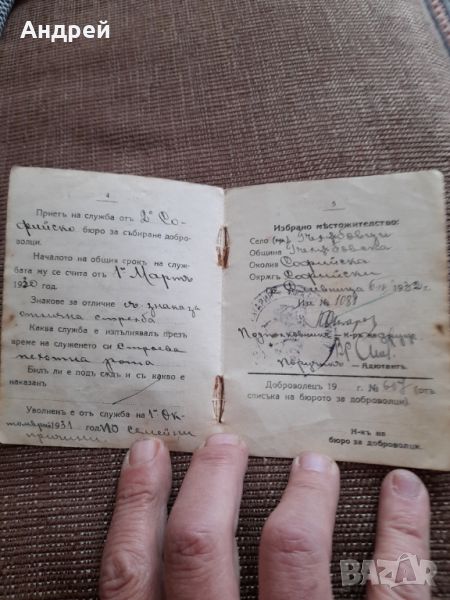 Андрей
4
Приетъ на служба отъ 2º Со-
фийско бюро за събиране добро-
волци.
Началото на общия срокъ на служ-
бата му се счита отъ 1й Мартъ
1930 год.
Знакове за отличие съ знака за
отлична стрелба
Каква служба е изпълнявалъ презъ
време на служенето си Строева
пехотна рота
Билъ ли е подъ сѫдъ и съ какво е
наказанъ
Уволненъ е отъ служба на 1й Ок-
томврий 1931 год. по семейни
причини
5
Избрано мѣстожителство:
Село (гр.)
Община
Околия Софийска
Окрѫгъ Софийски
Сливница 1932 г.
№ 1038
Подполковникъ
Поручикъ Адютантъ
Доброволецъ 19 г. № (отъ
списъка на бюрото за доброволци).
Н-къ на
бюро за доброволци.
BAZAR